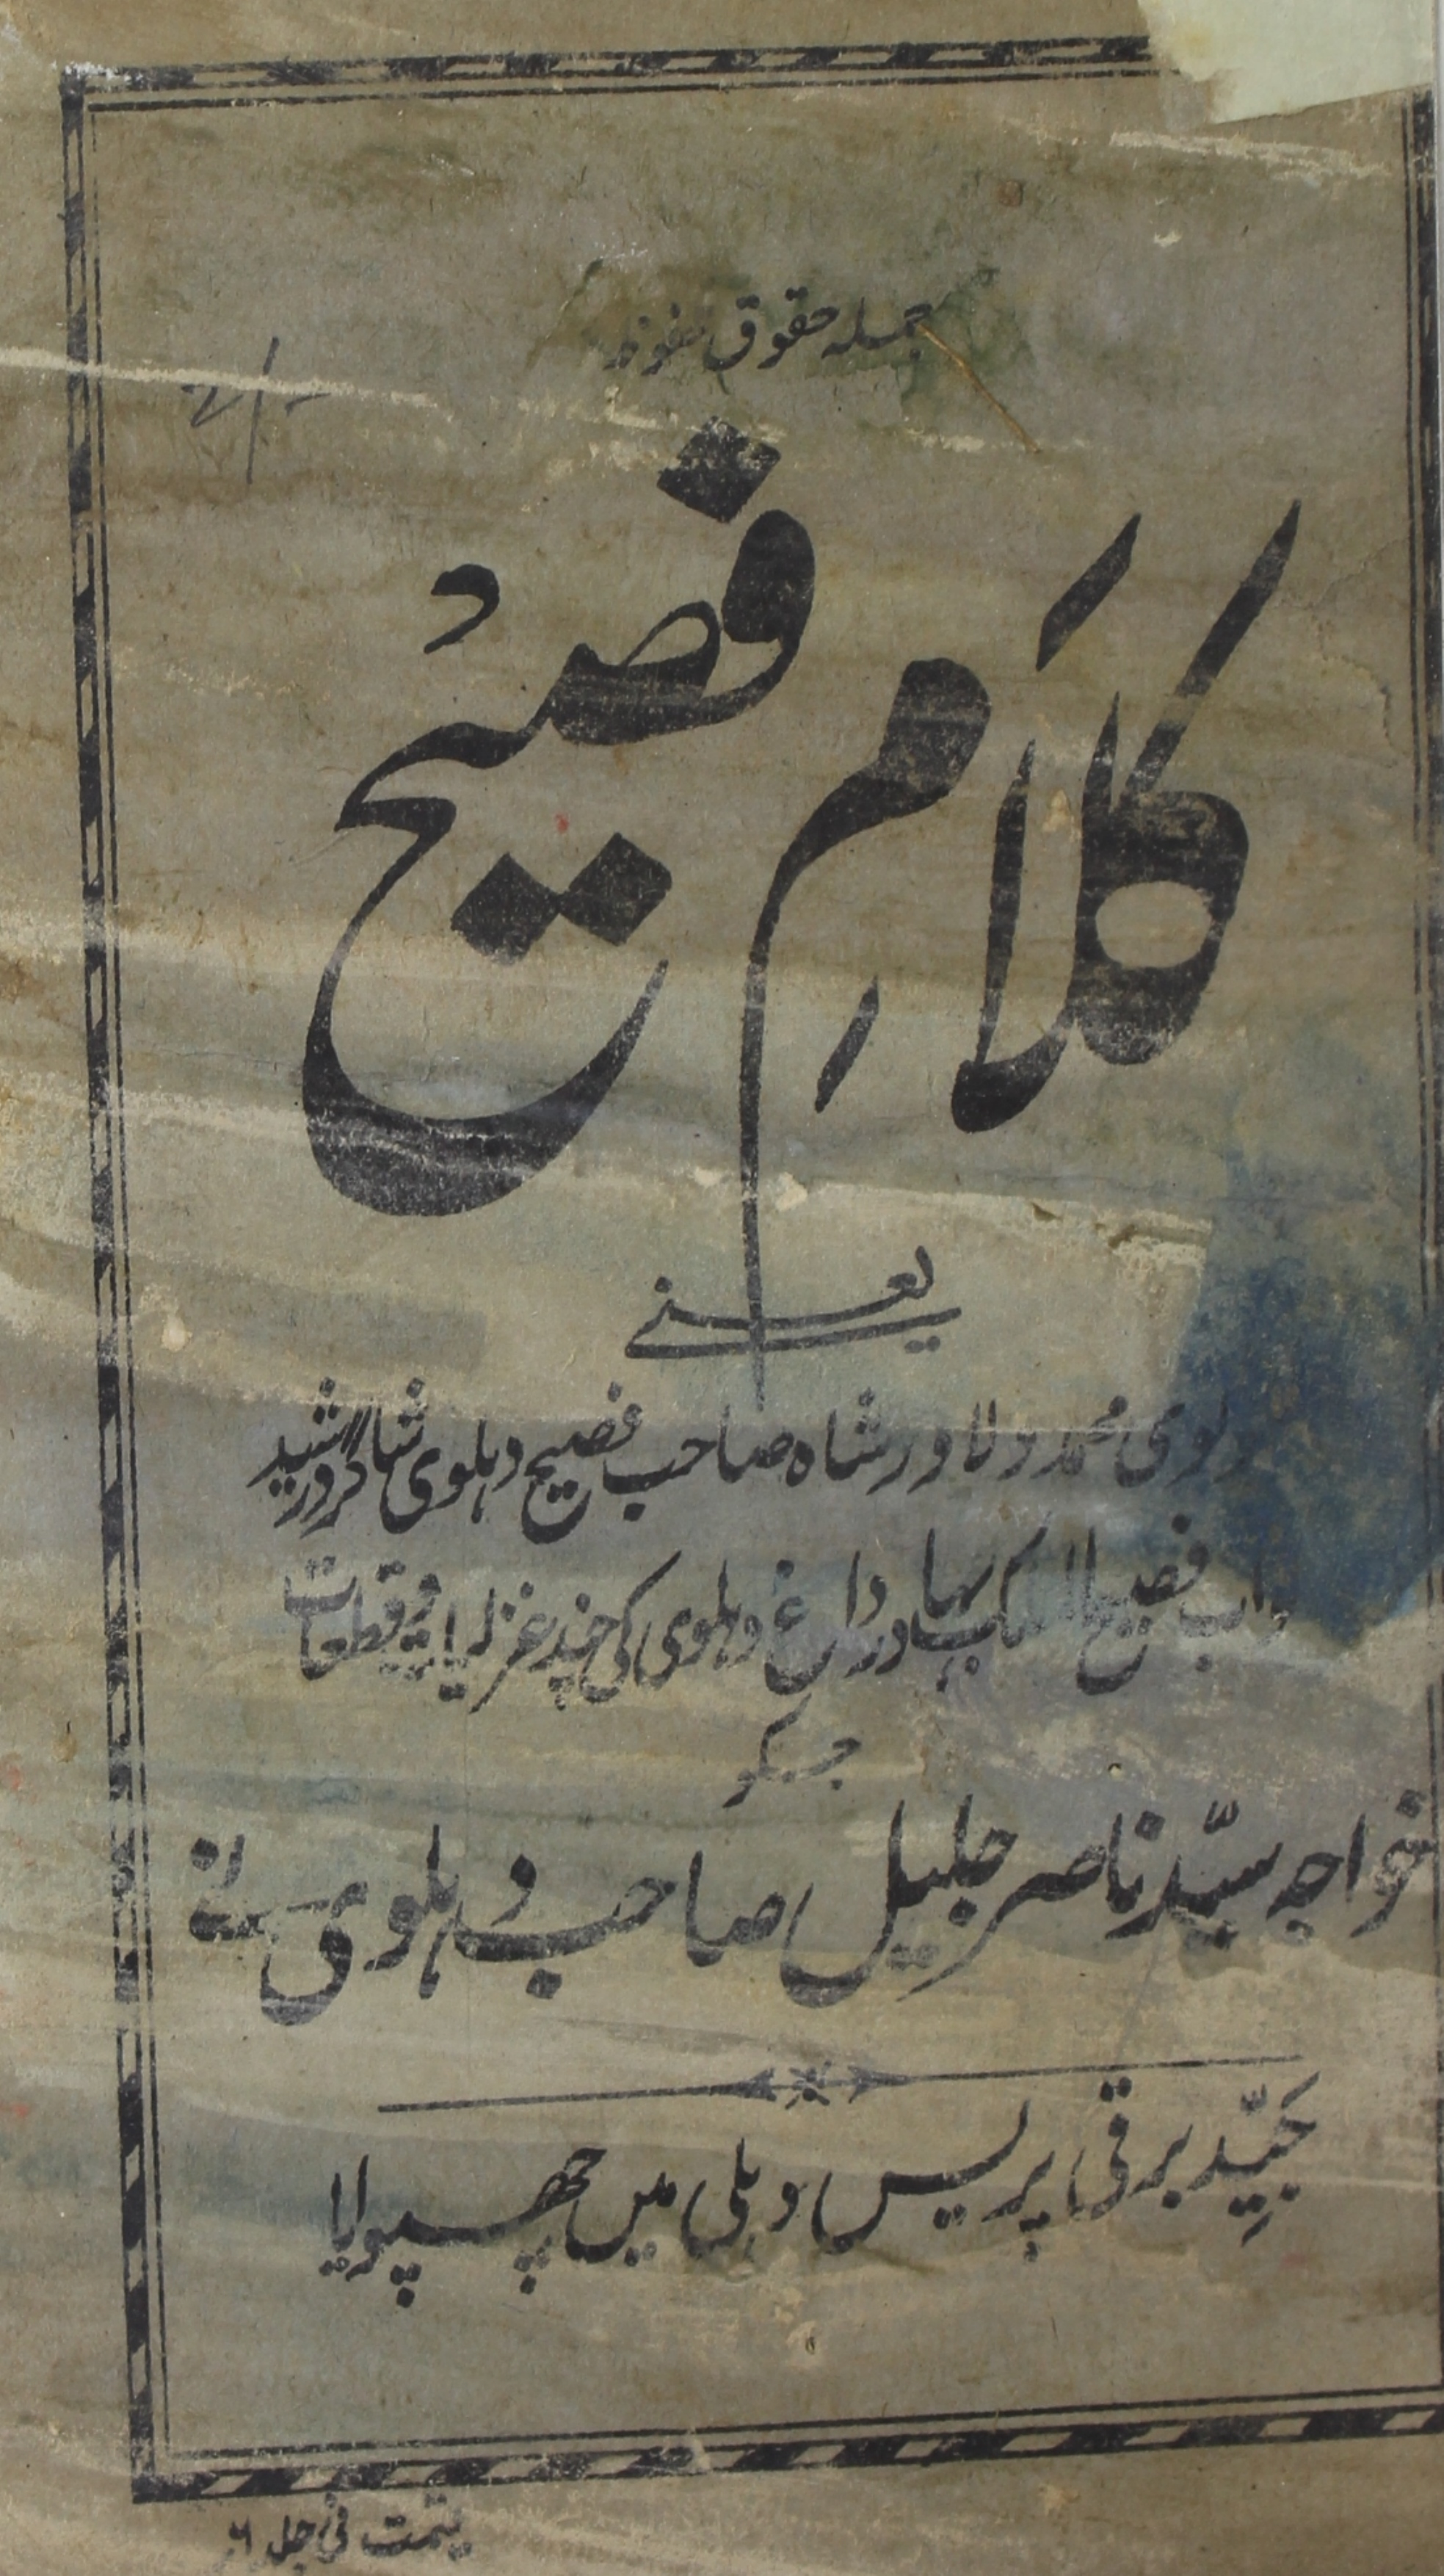 جملہ حقوق محفوظ
کلامِ فصیح
یعنے
مولوی محمد دلاور شاہ صاحب فصیح دہلوی شاگرد رشید
نواب فصیح الملک بہادر داغ دہلوی کی چند غزلیات و قطعات
جسکو
خواجہ سیّد ناصر جلیل صاحب دہلوی نے
جیِّد برقی پریس دہلی میں چھپوایا
قیمت فی جلد ۶؍